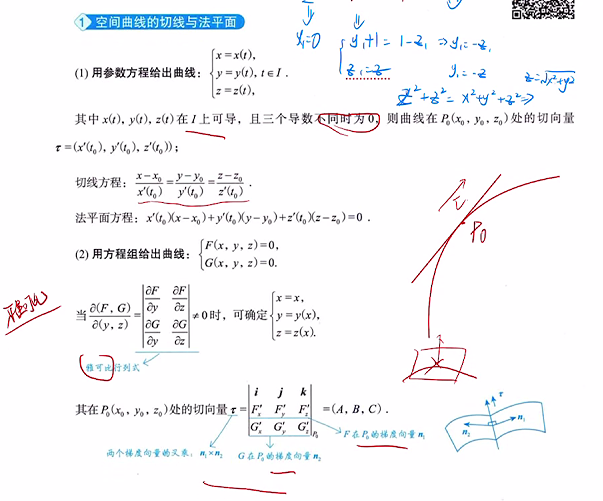 y₁=0
y₁+1=1-z₁ ⇒ y₁=-z₁
z₁=-z
y₁=-z
z=√x²+y²
z²+z²=x²+y²+z²⇒
1 空间曲线的切线与法平面
(1) 用参数方程给出曲线：{x=x(t), y=y(t), z=z(t), t∈I.
其中 x(t), y(t), z(t) 在 I 上可导，且三个导数不同时为 0，则曲线在 P₀(x₀, y₀, z₀) 处的切向量
τ=(x′(t₀), y′(t₀), z′(t₀))；
切线方程：(x-x₀)/x′(t₀)=(y-y₀)/y′(t₀)=(z-z₀)/z′(t₀).
法平面方程：x′(t₀)(x-x₀)+y′(t₀)(y-y₀)+z′(t₀)(z-z₀)=0.
τ
P₀
(2) 用方程组给出曲线：{F(x, y, z)=0, G(x, y, z)=0.
当 ∂(F, G)/∂(y, z)=|∂F/∂y ∂F/∂z; ∂G/∂y ∂G/∂z|≠0 时，可确定{x=x, y=y(x), z=z(x).
雅可比行列式
其在 P₀(x₀, y₀, z₀) 处的切向量 τ=|i j k; F′x F′y F′z; G′x G′y G′z|P₀=(A, B, C).
F 在 P₀ 的梯度向量 n₁
G 在 P₀ 的梯度向量 n₂
两个梯度向量的叉乘：n₁×n₂
τ
n₂
n₁